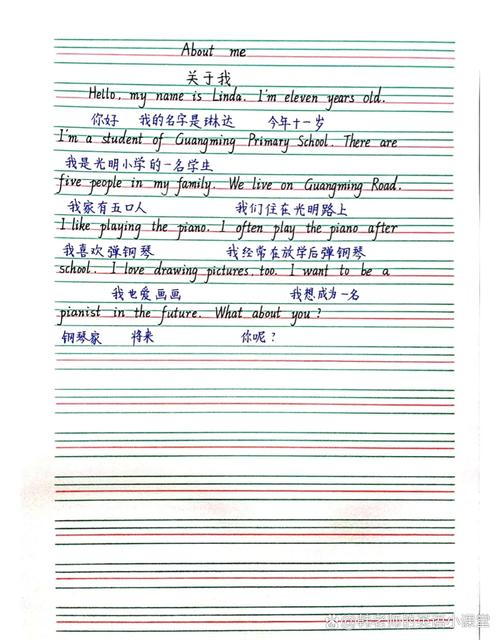 About me
关于我
Hello, my name is Linda. I'm eleven years old.
你好 我的名字是琳达 今年十一岁
I'm a student of Guangming Primary School. There are
我是光明小学的一名学生
five people in my family. We live on Guangming Road.
我家有五口人 我们住在光明路上
I like playing the piano. I often play the piano after
我喜欢弹钢琴 我经常在放学后弹钢琴
school. I love drawing pictures, too. I want to be a
我也爱画画 我想成为一名
pianist in the future. What about you?
钢琴家 将来 你呢?
老师的英语小课堂